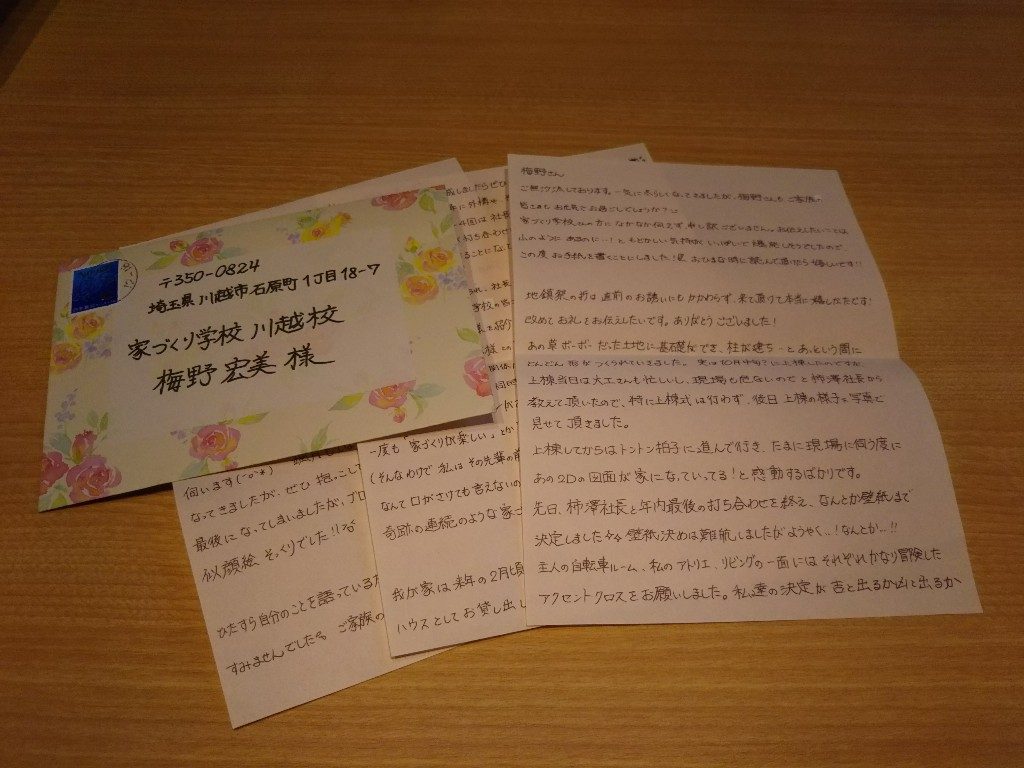 〒350-0824
埼玉県川越市石原町1丁目18-7
家づくり学校 川越校
梅野 宏美 様
梅野さん
ご無沙汰しております。一気に冬らしくなってきましたが、梅野さんも、ご家族の
皆さまも お元気でお過ごしでしょうか？
家づくり学校さんの方に なかなか伺えず 申し訳ございません。お伝えしたいことは
山のように あるのに…！と もどかしい気持ちで いっぱいで 爆発しそうでしたので
この度 お手紙を書くことにしました！ おひまな時に 読んで頂けたら 嬉しいです!!
地鎮祭の折は 直前のお誘いにもかかわらず、来て頂けて本当に嬉しかったです！
改めて お礼を お伝えしたいです。ありがとう ございました！
あの草ボーボーだった土地に 基礎ができ、柱が建ち…と あっという間に
どんどん 形が つくられていきました。
上棟当日は 大工さんも忙しいし、現場も危ないので と 柿澤社長から
教えて頂いたので、特に上棟式は行わず、後日 上棟の様子を写真で
見せて 頂きました。
上棟してからは トントン拍子に 進んで行き、たまに現場に伺う度に
あの2Dの図面が 家に なっていってる！と 感動するばかりです。
先日、柿澤社長と年内最後の打ち合わせを終え、なんとか壁紙まで
決定しました 壁紙決めは難航しましたが ようやく..！なんとか..!!
主人の自転車ルーム、私のアトリエ、リビングの一面には それぞれかなり冒険した
アクセントクロスを お願いしました。私達の決定が 吉と出るか凶と出るか
成しましたら ぜひ
に外構や
今回は 社長
打ち合わせ
ることになって
一度も「家づくりが楽しい」とか
(そんなわけで 私は その先輩の前
なんて 口がさけても言えないの
奇跡の連続のような家づ
我が家は 来年の2月頃
ハウスとして お貸し出し
伺います(
なってきましたが、ぜひ 抱っこして
最後に なってしまいましたが、ブロ
似顔絵 そっくりでした！
ひたすら自分のことを語っている
すみませんでした ご家族の